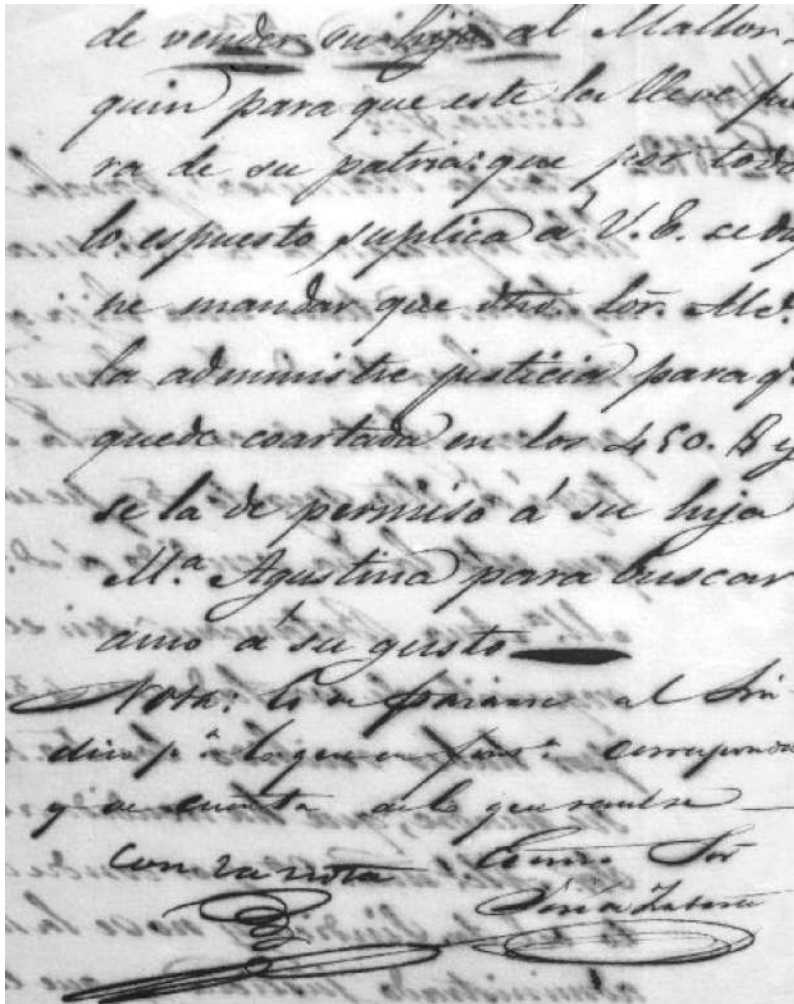 de vender su hija al Mallor-
quin para que este la lleve fue
ra de su patria: que por todo
lo espuesto suplica á V. E. se dig
ne mandar que dho. Sor. Me.
la administre justicia para q.
quede coartada en los 450. p y
se la de permiso á su hija
M.ª Agustina para buscar
amo á su gusto
Nota: al Sin-
dico p.ª lo que en corresponda
y de cuenta de lo que resulte
con la nota Sor